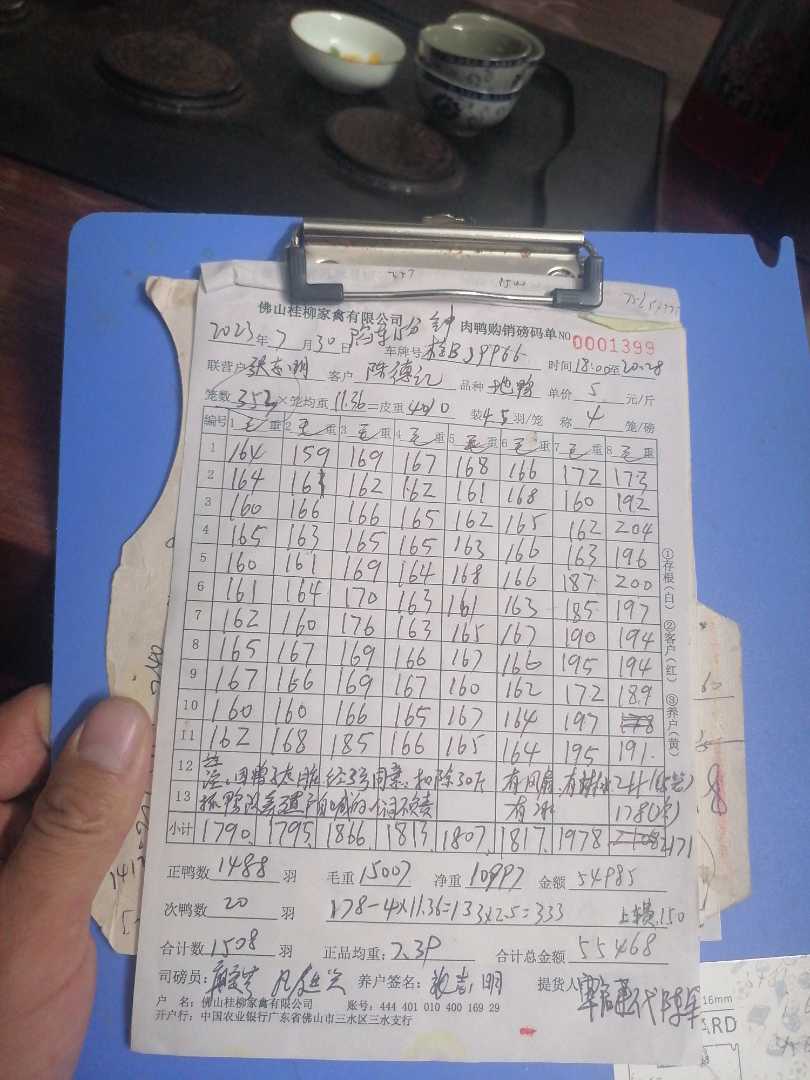 佛山桂柳家禽有限公司 肉鸭购销磅码单 NO 0001399
2023年7月30日 车牌号 桂BJ9966 时间 18:00至20:28
联营户 张志明 客户 陈德记 品种 地鸭 单价 5 元/斤
笼数 353 ×笼均重 11.36 =皮重 4010 装 4.5 羽/笼 称 4 笼/磅
编号 1 毛重 2 毛重 3 毛重 4 毛重 5 毛重 6 毛重 7 毛重 8 毛重
1 164 159 169 167 168 166 172 173
2 164 161 162 162 161 168 160 192
3 160 166 166 165 162 165 162 204
4 165 163 165 165 163 166 163 196
5 160 161 169 164 168 166 187 200
6 161 164 170 163 161 163 185 197
7 162 160 176 163 165 167 190 194
8 165 167 169 166 167 166 195 194
9 167 166 169 167 160 162 172 189
10 160 160 166 165 167 164 197
11 162 168 185 166 165 164 195 191
12 注: 同意 扣除30斤 有风扇
13 有冰 178(次)
小计 1790 1795 1866 1813 1807 1817 1978 2171
①存根(白) ②客户(红) ③养户(黄)
正鸭数 1488 羽 毛重 15007 净重 10997 金额 54985
次鸭数 20 羽 178-4×11.36=133×2.5=333 150
合计数 1508 羽 正品均重: 7.39 合计总金额 55468
司磅员: 养户签名: 张志明 提货人
户 名: 佛山桂柳家禽有限公司 账号: 444 401 010 400 169 29
开户行: 中国农业银行广东省佛山市三水区三水支行
16mm
RD